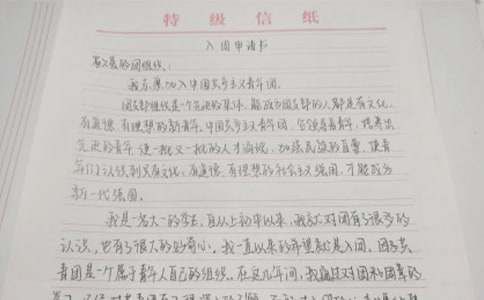 特级信纸
入团申请书
敬爱的团组织：
我志愿加入中国共产主义青年团。
团组织是一个先进的集体，能成为团员的人都是有文化、
有道德、有理想的新青年。中国共产主义青年团，它领导着青年，培养出
先进的青年，使一批又一批的人才涌现，加强民族的力量，使青
年们认识到只有文化、有道德、有理想的社会主义强国，才能成为
新一代强国。
我是一名大一的学生，自从上初中以来，我就对团有了很多的
认识，也有了很大的好奇心。我一直以来的希望就是入团，因为共
青团是一个属于青年人自己的组织。在这几年间，我通过对团和团章的